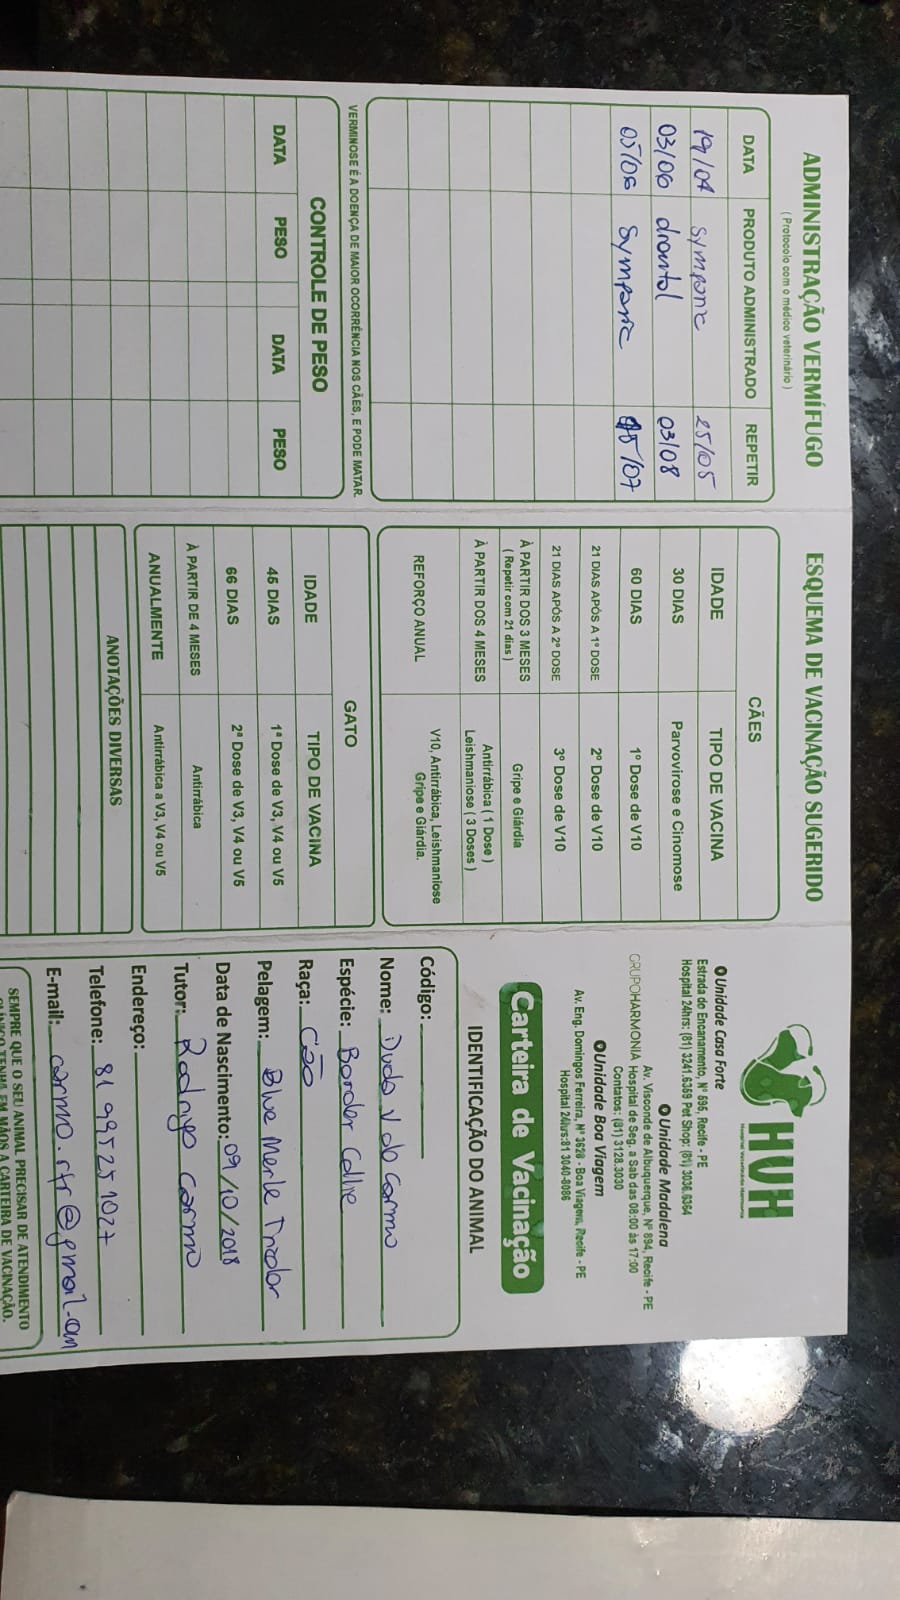 ADMINISTRAÇÃO VERMÍFUGO
( Protocolo com o médico veterinário )
DATA PRODUTO ADMINISTRADO REPETIR
19/04 symparic 25/05
03/06 drontal 03/08
05/06 Symparic 05/07
VERMINOSE É A DOENÇA DE MAIOR OCORRÊNCIA NOS CÃES, E PODE MATAR.
CONTROLE DE PESO
DATA PESO DATA PESO
ESQUEMA DE VACINAÇÃO SUGERIDO
CÃES
IDADE TIPO DE VACINA
30 DIAS Parvovirose e Cinomose
60 DIAS 1º Dose de V10
21 DIAS APÓS A 1º DOSE 2º Dose de V10
21 DIAS APÓS A 2º DOSE 3º Dose de V10
À PARTIR DOS 3 MESES Gripe e Giárdia
( Repetir com 21 dias )
À PARTIR DOS 4 MESES Antirrábica ( 1 Dose )
Leishmaniose ( 3 Doses )
REFORÇO ANUAL V10, Antirrábica, Leishmaniose
Gripe e Giárdia.
GATO
IDADE TIPO DE VACINA
45 DIAS 1ª Dose de V3, V4 ou V5
66 DIAS 2ª Dose de V3, V4 ou V5
À PARTIR DE 4 MESES Antirrábica
ANUALMENTE Antirrábica a V3, V4 ou V5
ANOTAÇÕES DIVERSAS
HVH
Unidade Casa Forte
Estrada do Encanamento, Nº 696, Recife - PE
Hospital 24hrs: (81) 3241.6369 Pet Shop: (81) 3036.6364
Unidade Madalena
Av. Visconde de Albuquerque, Nº 894, Recife - PE
GRUPOHARMONIA Hospital de Seg. a Sab das 08:00 às 17:00
Contatos: (81) 3128.3030
Unidade Boa Viagem
Av. Eng. Domingos Ferreira, Nº 3628 - Boa Viagem, Recife - PE
Hospital 24hrs:81 3040-8086
Carteira de Vacinação
IDENTIFICAÇÃO DO ANIMAL
Código:
Nome: Duda V do Carmo
Espécie: Border Collie
Raça: Cão
Pelagem: Blue Merle Tricolor
Data de Nascimento: 09/10/2018
Tutor: Rodrigo Carmo
Endereço:
Telefone: 81 99525 1027
E-mail: carmo.rfr@gmail.com
SEMPRE QUE O SEU ANIMAL PRECISAR DE ATENDIMENTO
CLÍNICO TENHA EM MÃOS A CARTEIRA DE VACINAÇÃO.